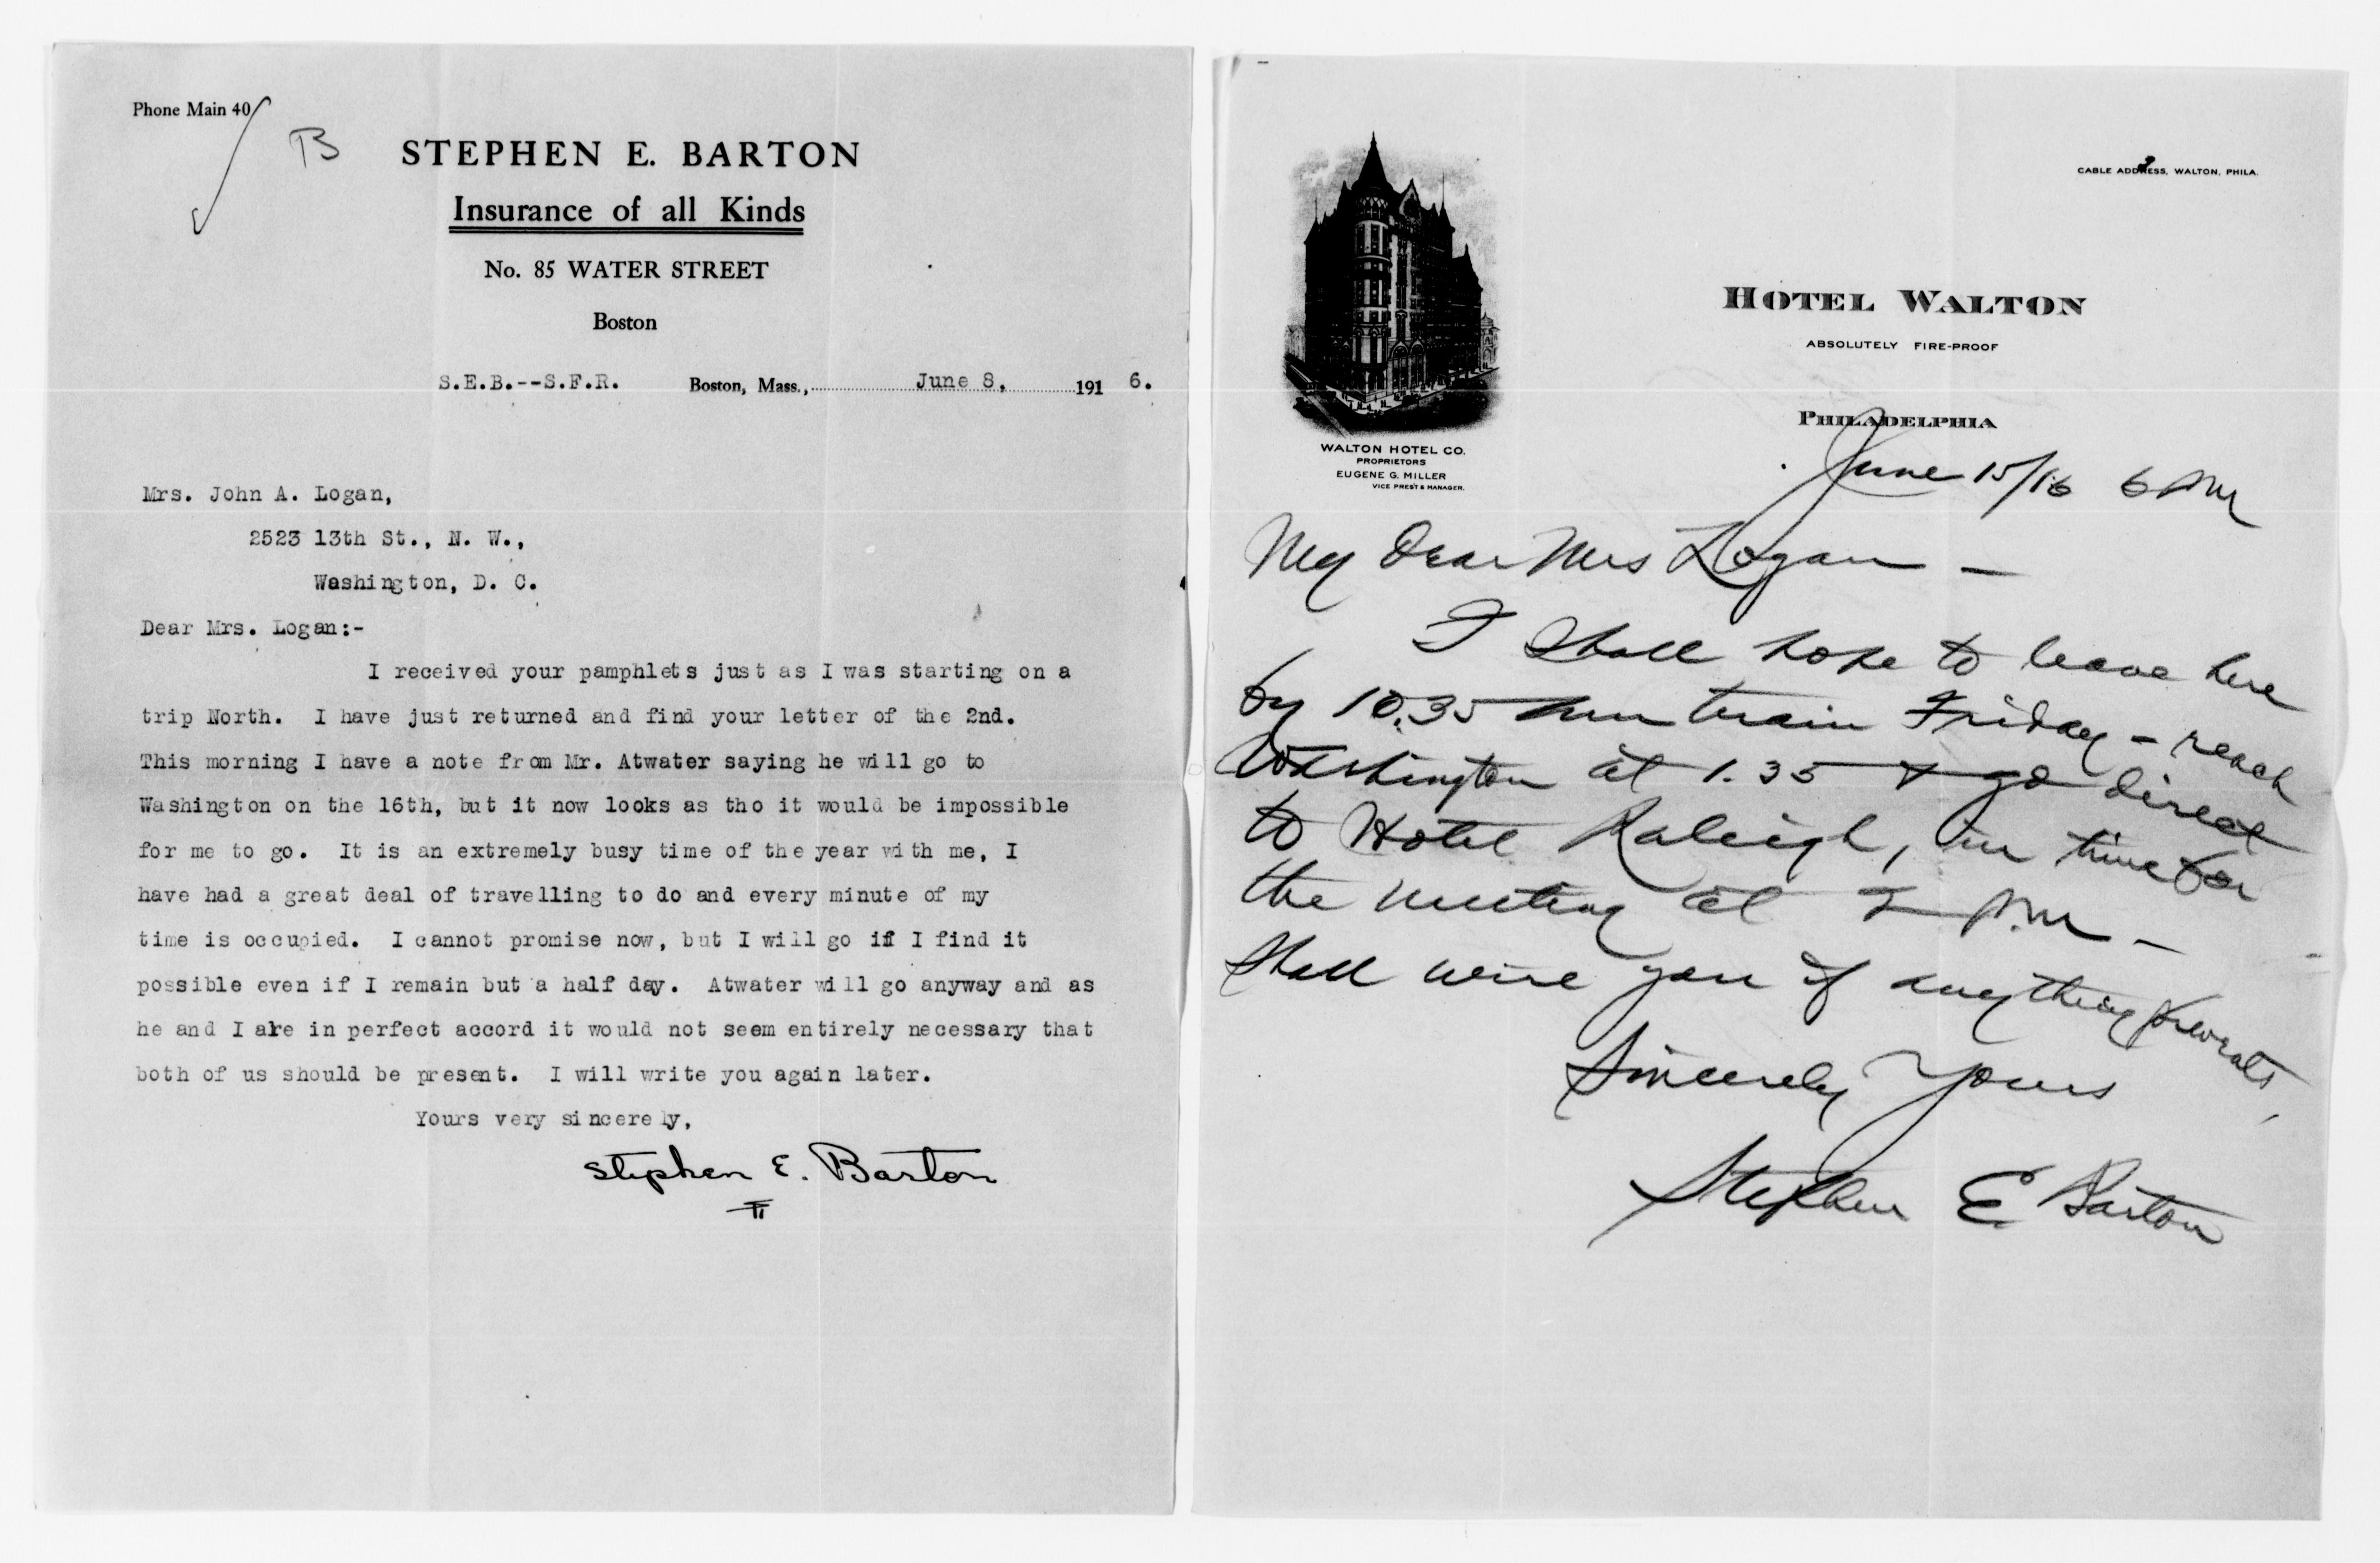 Phone Main 40
B
STEPHEN E. BARTON
Insurance of all Kinds
No. 85 WATER STREET
Boston
S.E.B.--S.F.R. Boston, Mass., June 8, 1916.
Mrs. John A. Logan,
2523 13th St., N. W.,
Washington, D. C.
Dear Mrs. Logan:-
I received your pamphlets just as I was starting on a
trip North. I have just returned and find your letter of the 2nd.
This morning I have a note from Mr. Atwater saying he will go to
Washington on the 16th, but it now looks as tho it would be impossible
for me to go. It is an extremely busy time of the year with me, I
have had a great deal of travelling to do and every minute of my
time is occupied. I cannot promise now, but I will go if I find it
possible even if I remain but a half day. Atwater will go anyway and as
he and I are in perfect accord it would not seem entirely necessary that
both of us should be present. I will write you again later.
Yours very sincerely,
Stephen E. Barton
CABLE ADDRESS, WALTON, PHILA.
HOTEL WALTON
ABSOLUTELY FIRE-PROOF
PHILADELPHIA
WALTON HOTEL CO.
PROPRIETORS
EUGENE G. MILLER
VICE PRES'T & MANAGER.
June 15/16 6 PM
My Dear Mrs Logan -
I shall hope to leave here
by 10.35 am train Friday - reach
Washington at 1.35 & go direct
to Hotel Raleigh, in time for
the meeting at 2 P.M -
Shall wire you if anything prevents,
Sincerely Yours
Stephen E Barton